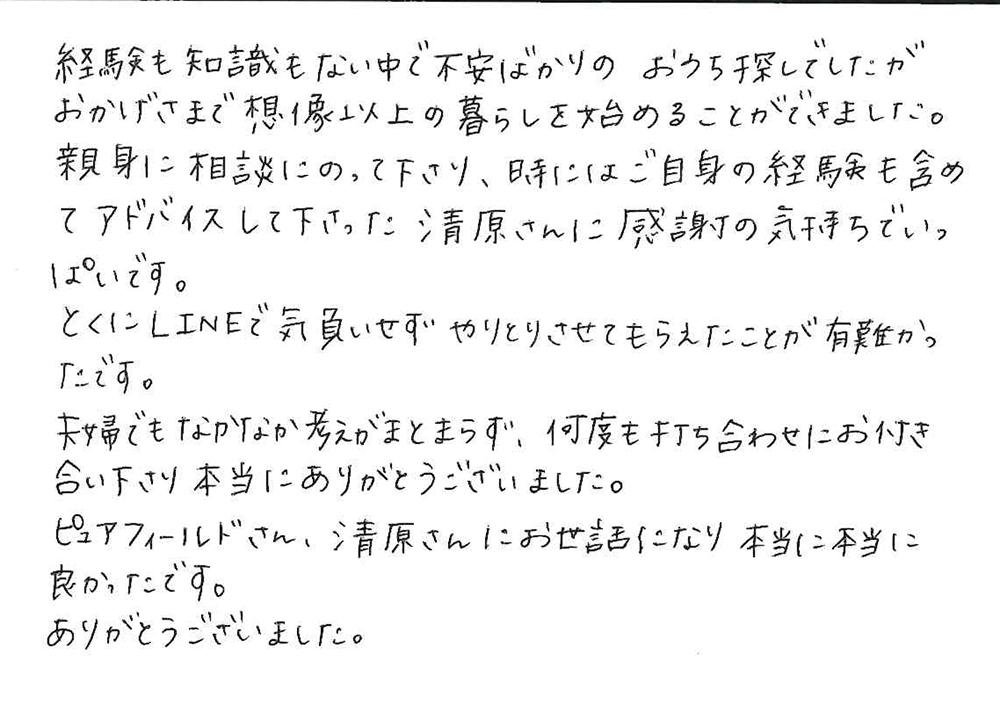 経験も知識もない中で不安ばかりの おうち探しでしたが
おかげさまで想像以上の暮らしを始めることができました。
親身に相談にのって下さり、時にはご自身の経験も含め
てアドバイスして下さった 清原さんに感謝の気持ちでいっ
ぱいです。
とくにLINEで気負いせずやりとりさせてもらえたことが有難かっ
たです。
夫婦でもなかなか考えがまとまらず、何度も打ち合わせにお付き
合い下さり本当にありがとうございました。
ピュアフィールドさん、清原さんにお世話になり 本当に本当に
良かったです。
ありがとうございました。